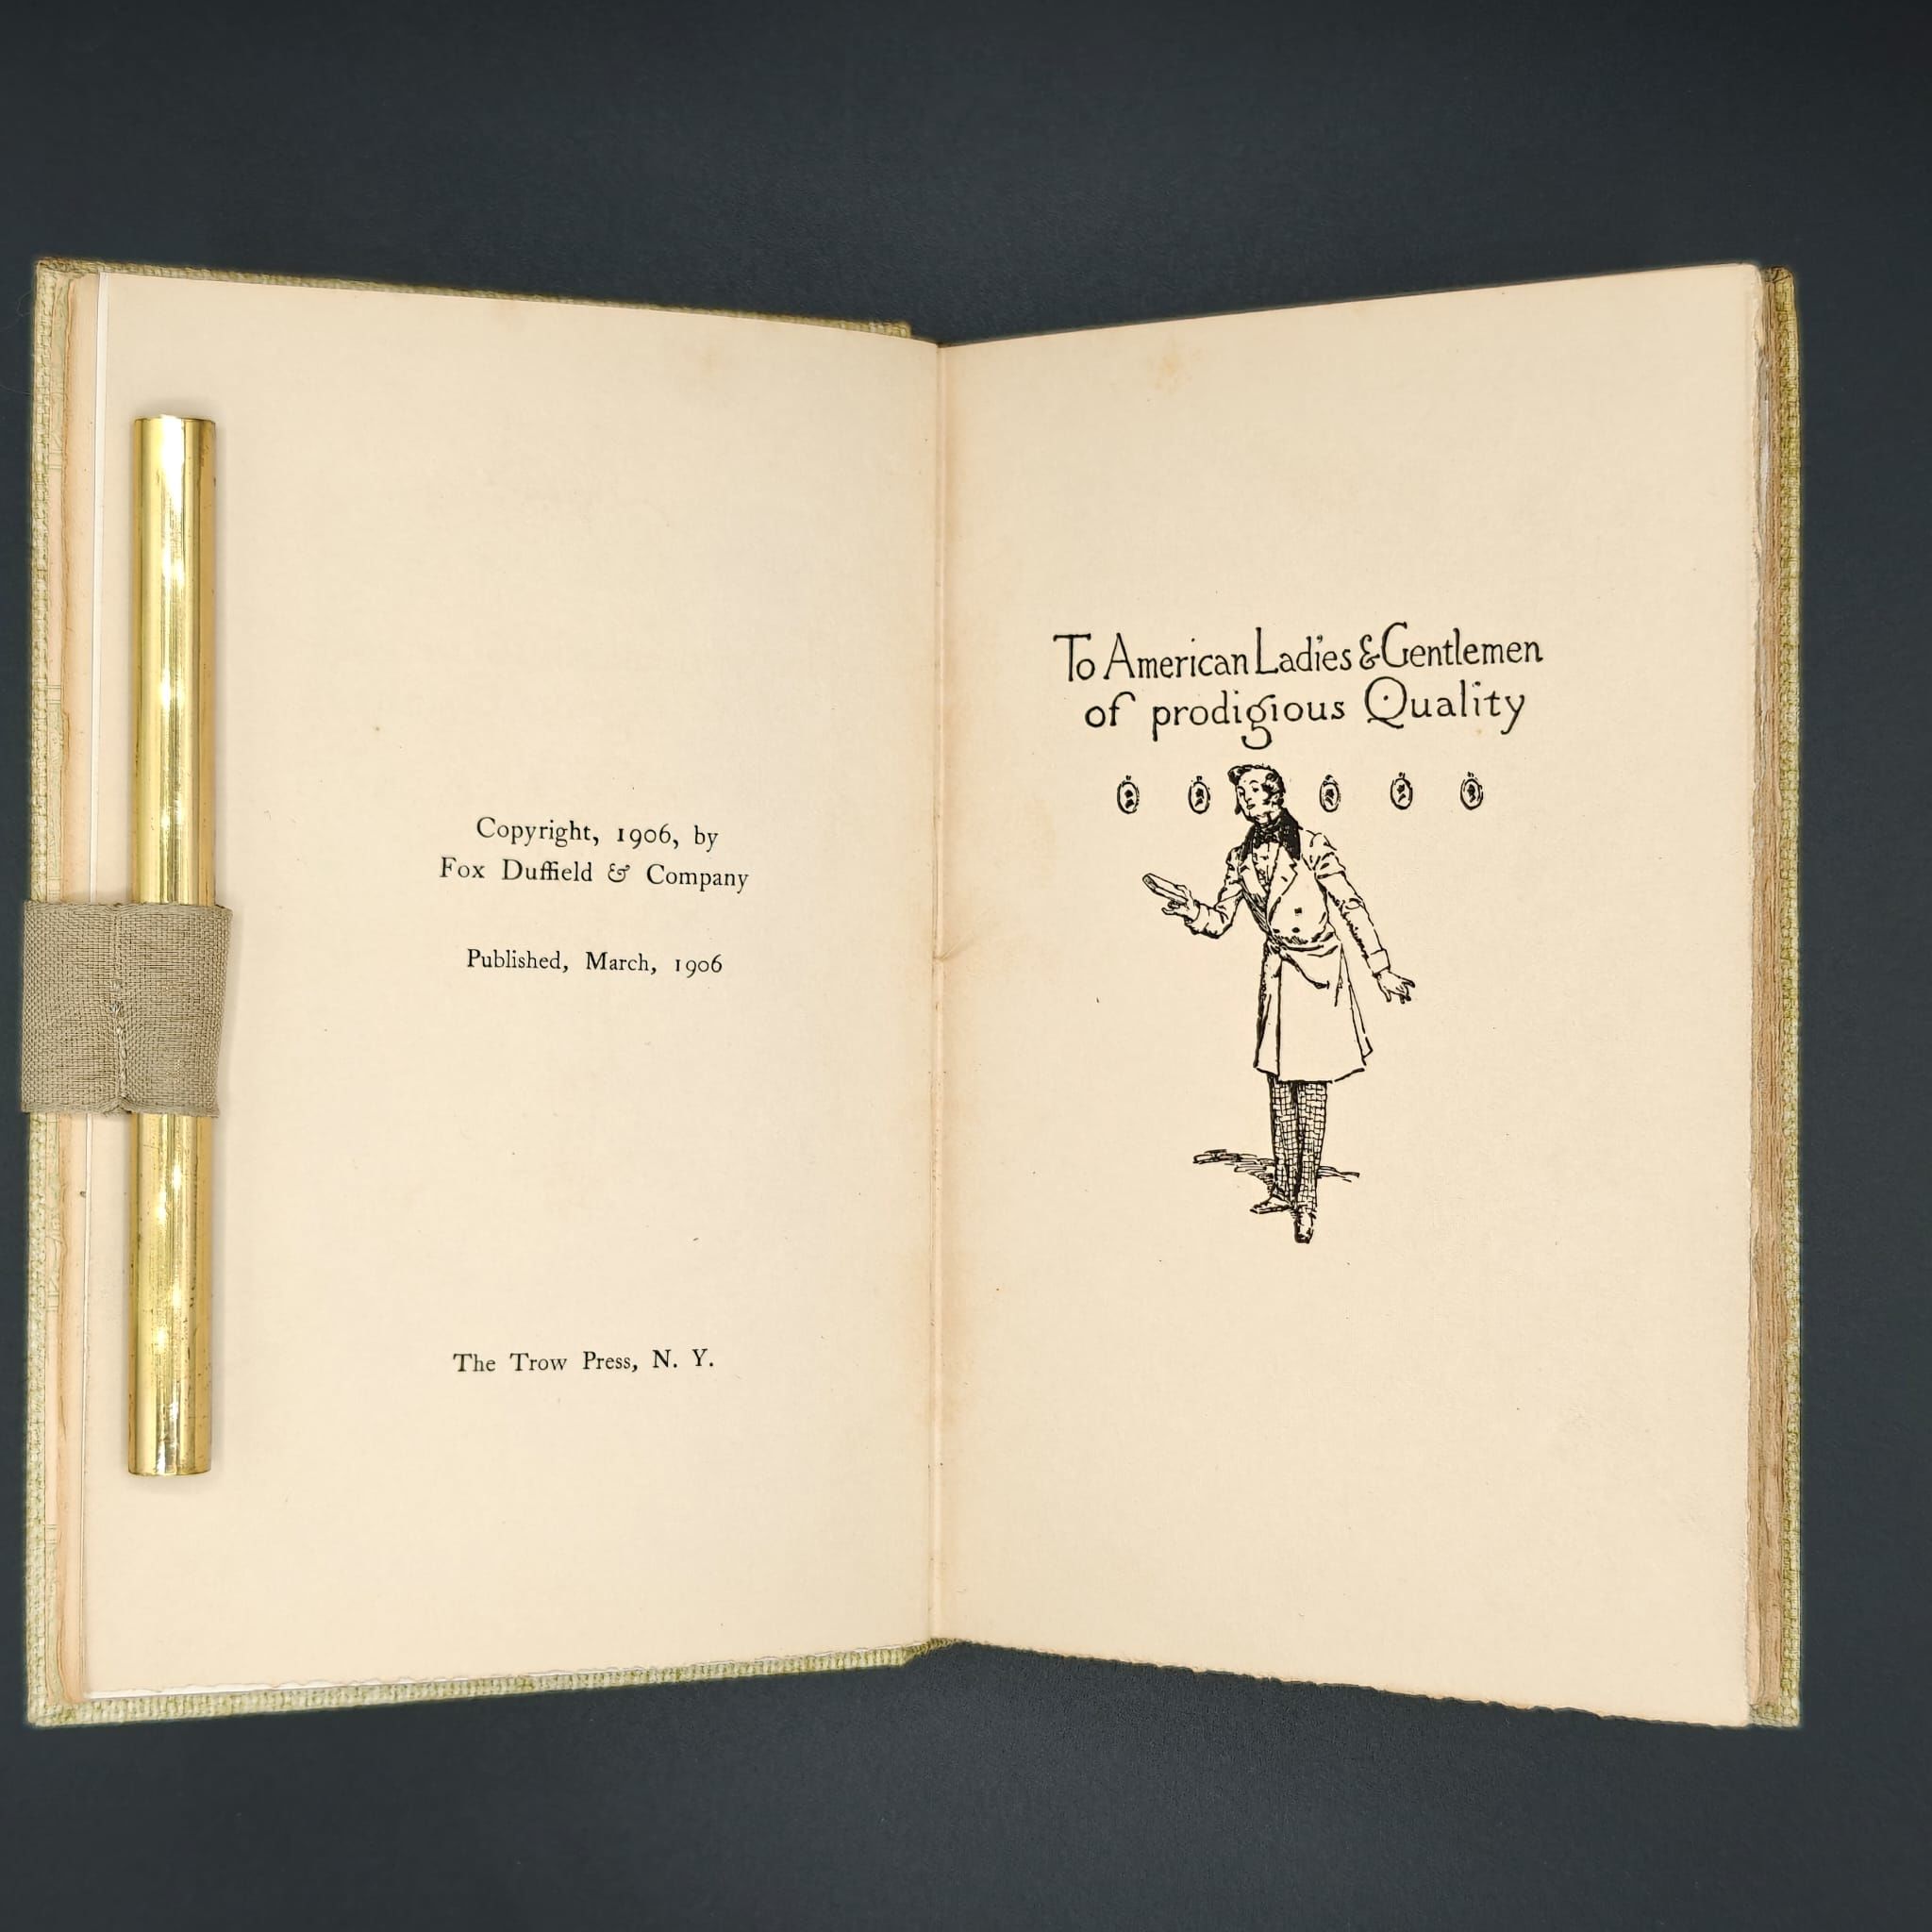 Copyright, 1906, by
Fox Duffield & Company
Published, March, 1906
The Trow Press, N. Y.
To American Ladies & Gentlemen
of prodigious Quality